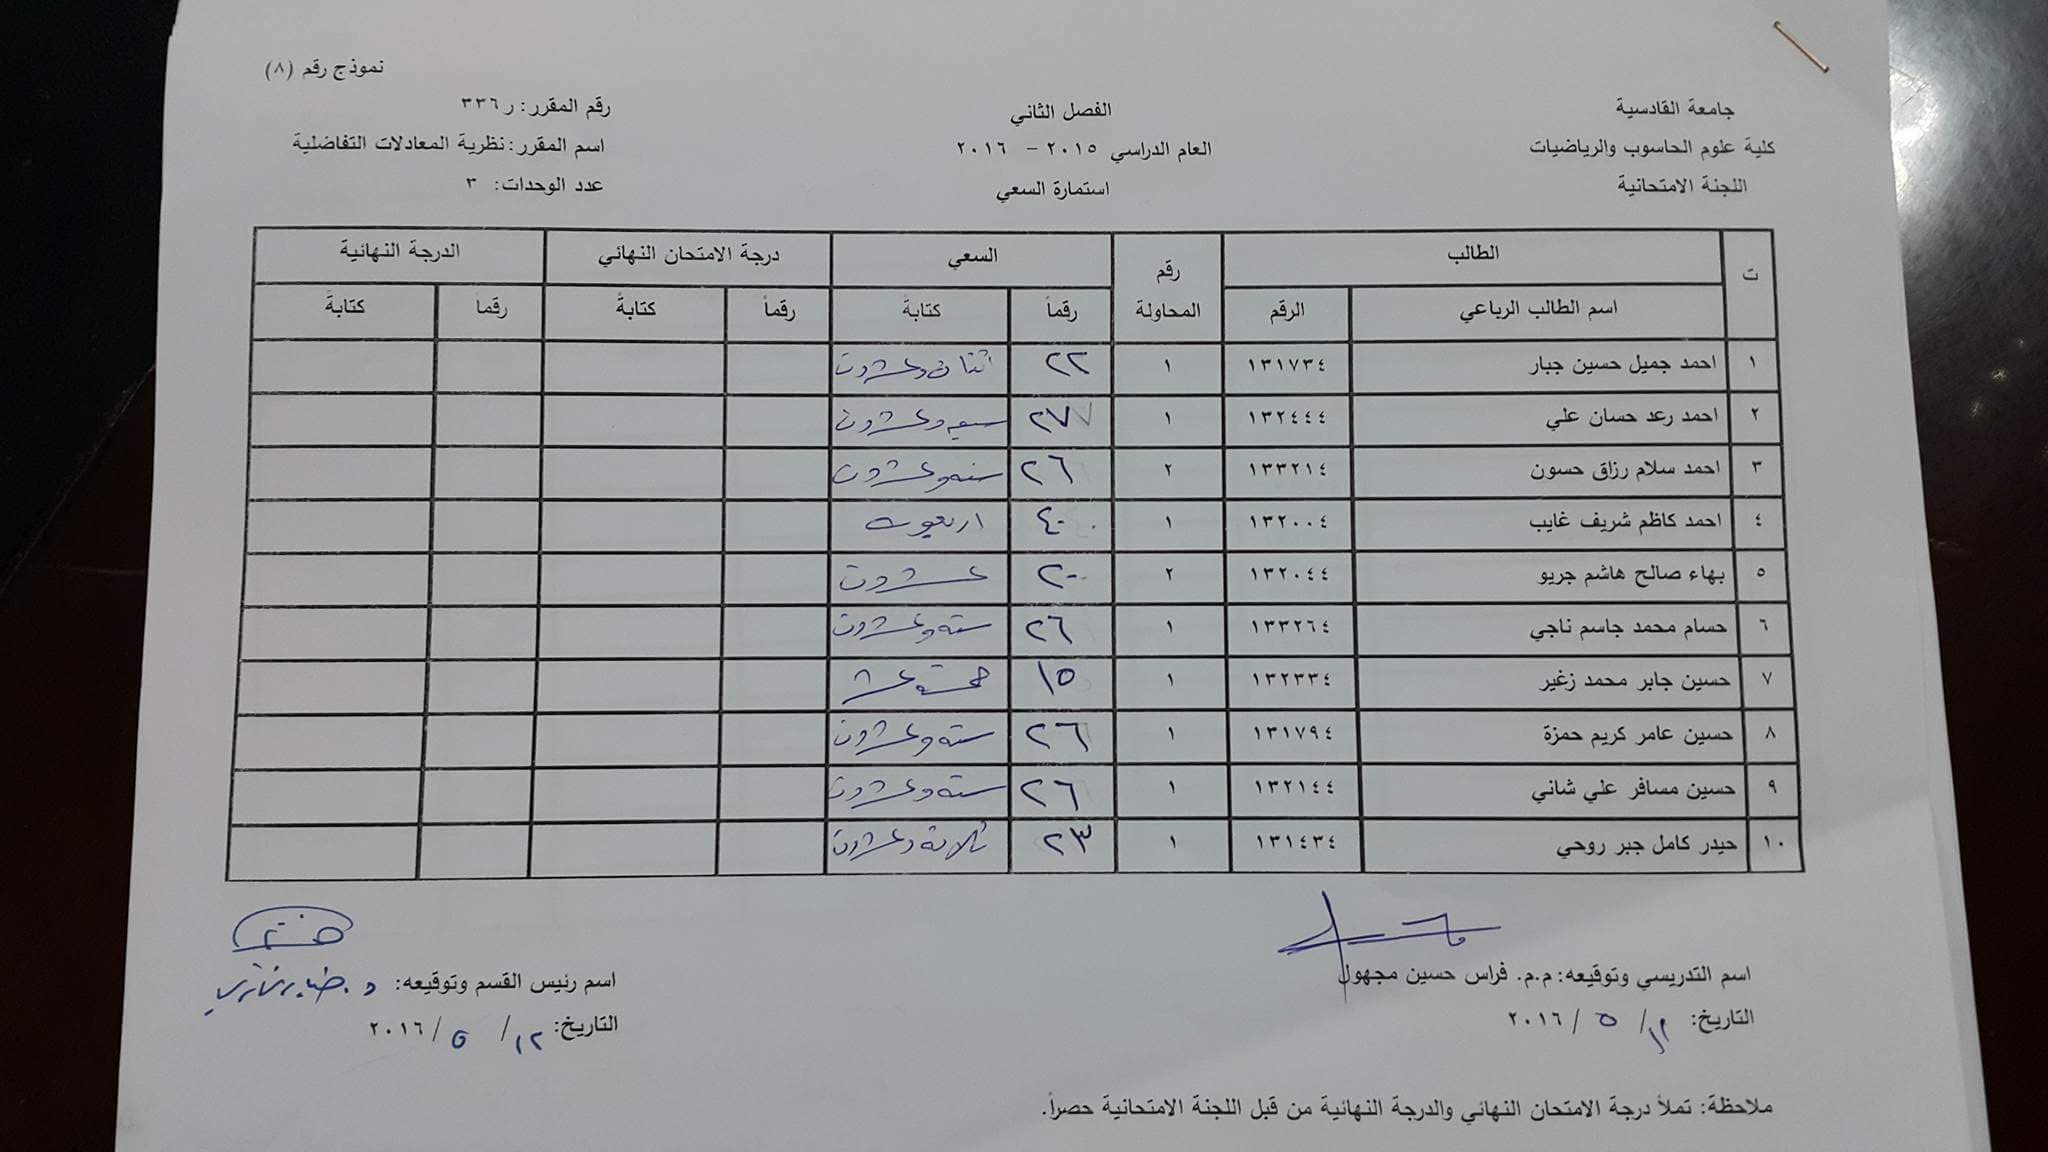 نموذج رقم (٨)
جامعة القادسية الفصل الثاني رقم المقرر: ر ٣٣٦
كلية علوم الحاسوب والرياضيات العام الدراسي ٢٠١٥ – ٢٠١٦ اسم المقرر: نظرية المعادلات التفاضلية
اللجنة الامتحانية استمارة السعي عدد الوحدات: ٣
ت الطالب رقم المحاولة السعي درجة الامتحان النهائي الدرجة النهائية
اسم الطالب الرباعي الرقم رقماً كتابةً رقماً كتابةً رقماً كتابةً
١ احمد جميل حسين جبار ١٣١٧٣٤ ١ ٢٢ اثنان وعشرون
٢ احمد رعد حسان علي ١٣٢٤٤٤ ١ ٢٧ سبعه وعشرون
٣ احمد سلام رزاق حسون ١٣٣٢١٤ ٢ ٢٦ سته وعشرون
٤ احمد كاظم شريف غايب ١٣٢٠٠٤ ١ ٤٠ اربعون
٥ بهاء صالح هاشم جريو ١٣٢٠٤٤ ٢ ٢٠ عشرون
٦ حسام محمد جاسم ناجي ١٣٣٢٦٤ ١ ٢٦ سته وعشرون
٧ حسين جابر محمد زغير ١٣٢٣٣٤ ١ ١٥ خمسة عشر
٨ حسين عامر كريم حمزة ١٣١٧٩٤ ١ ٢٦ سته وعشرون
٩ حسين مسافر علي شاني ١٣٢١٤٤ ١ ٢٦ سته وعشرون
١٠ حيدر كامل جبر روحي ١٣١٤٣٤ ١ ٢٣ ثلاثة وعشرون
اسم التدريسي وتوقيعه: م.م. فراس حسين مجهول اسم رئيس القسم وتوقيعه: د.
التاريخ: ١٢ / ٥ / ٢٠١٦ التاريخ: ١٢ / ٥ / ٢٠١٦
ملاحظة: تملأ درجة الامتحان النهائي والدرجة النهائية من قبل اللجنة الامتحانية حصراً.